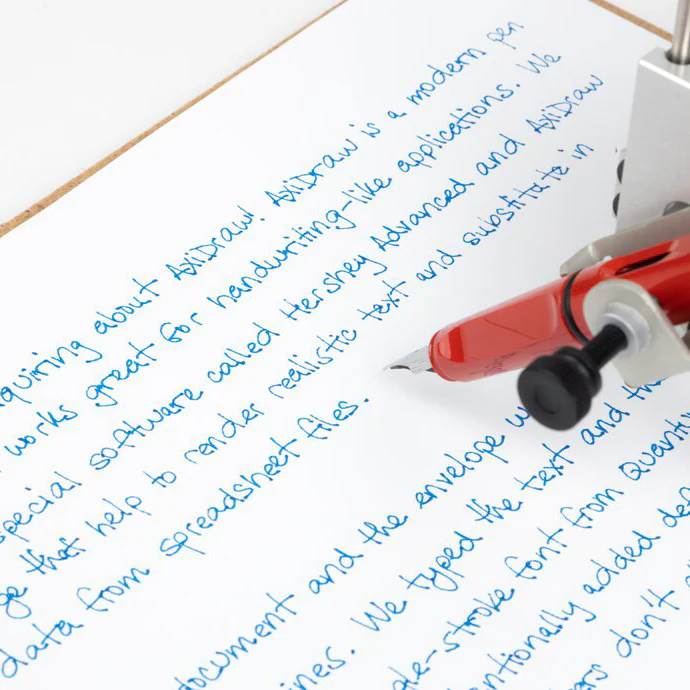 quiring about AxiDraw! AxiDraw is a modern pen
works great for handwriting-like applications. We
special software called Hershey Advanced and AxiDraw
ge that help to render realistic text and substitute in
data from spreadsheet files.
document and the envelope w
ines. We typed the text and th
le-stroke font from Quanti
ntionally added de
ers don't